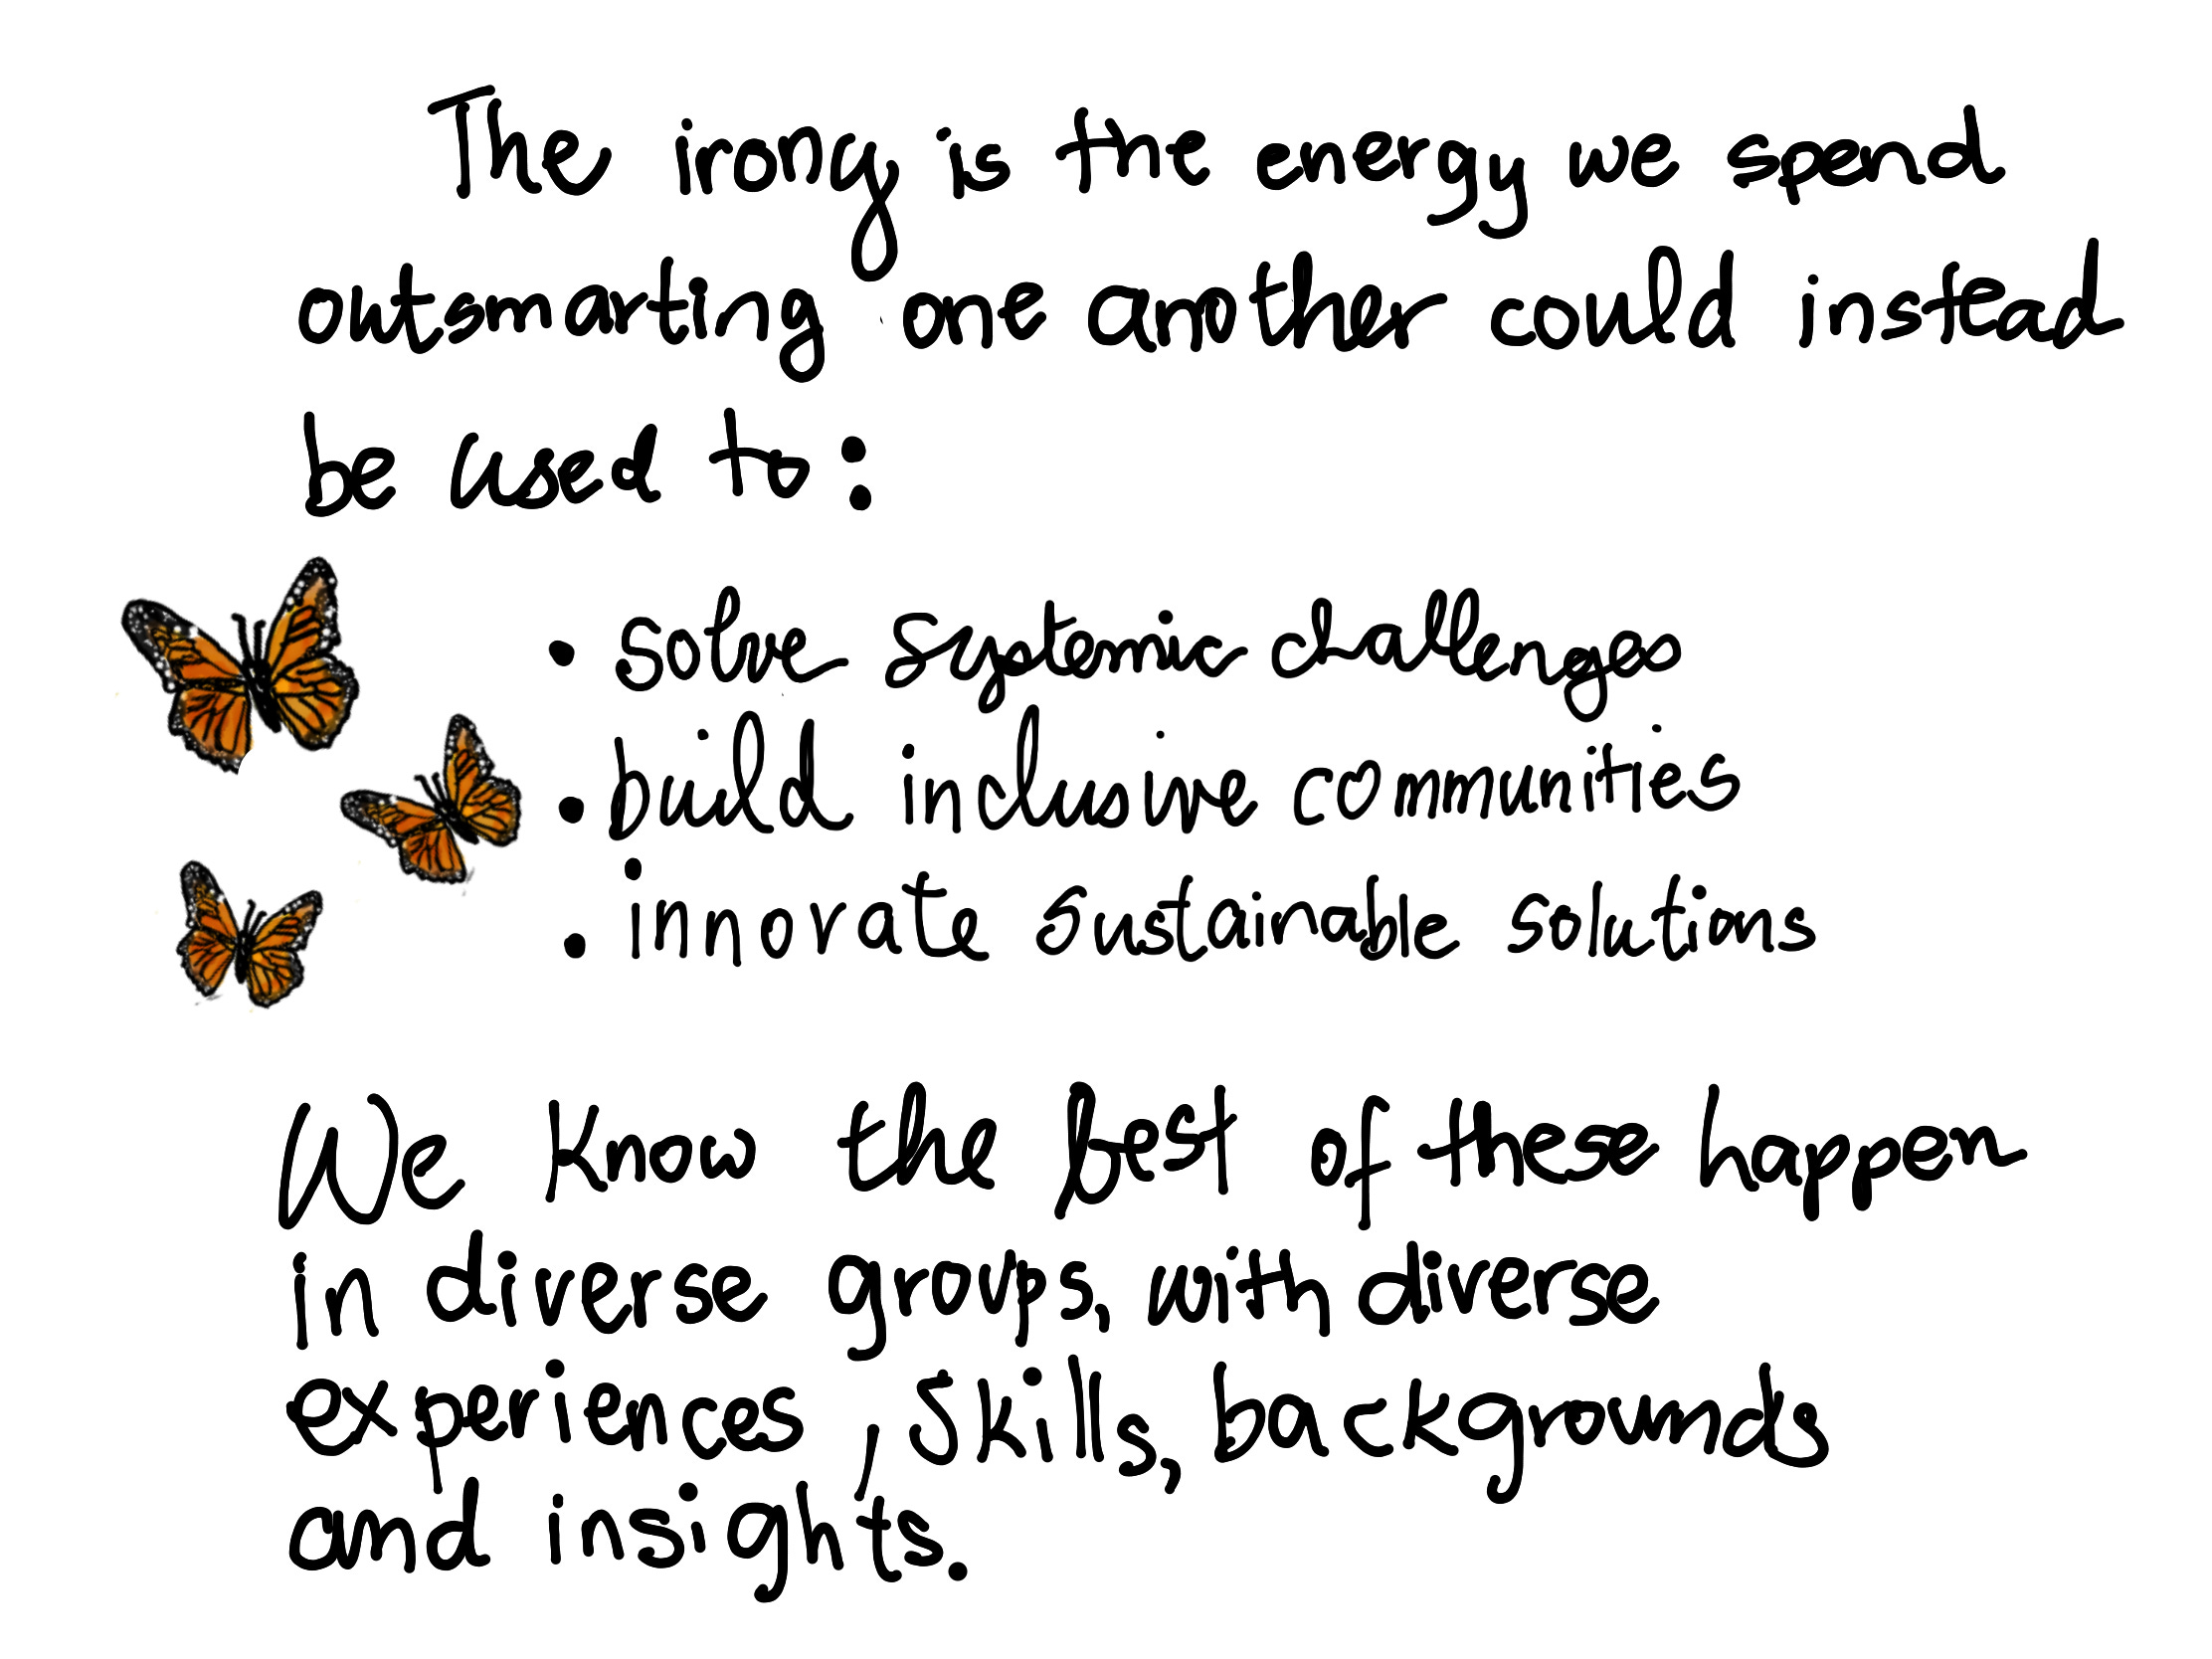 The irony is the energy we spend
outsmarting one another could instead
be used to:
• solve systemic challenges
• build inclusive communities
• innovate sustainable solutions
We know the best of these happen
in diverse groups, with diverse
experiences, skills, backgrounds
and insights.